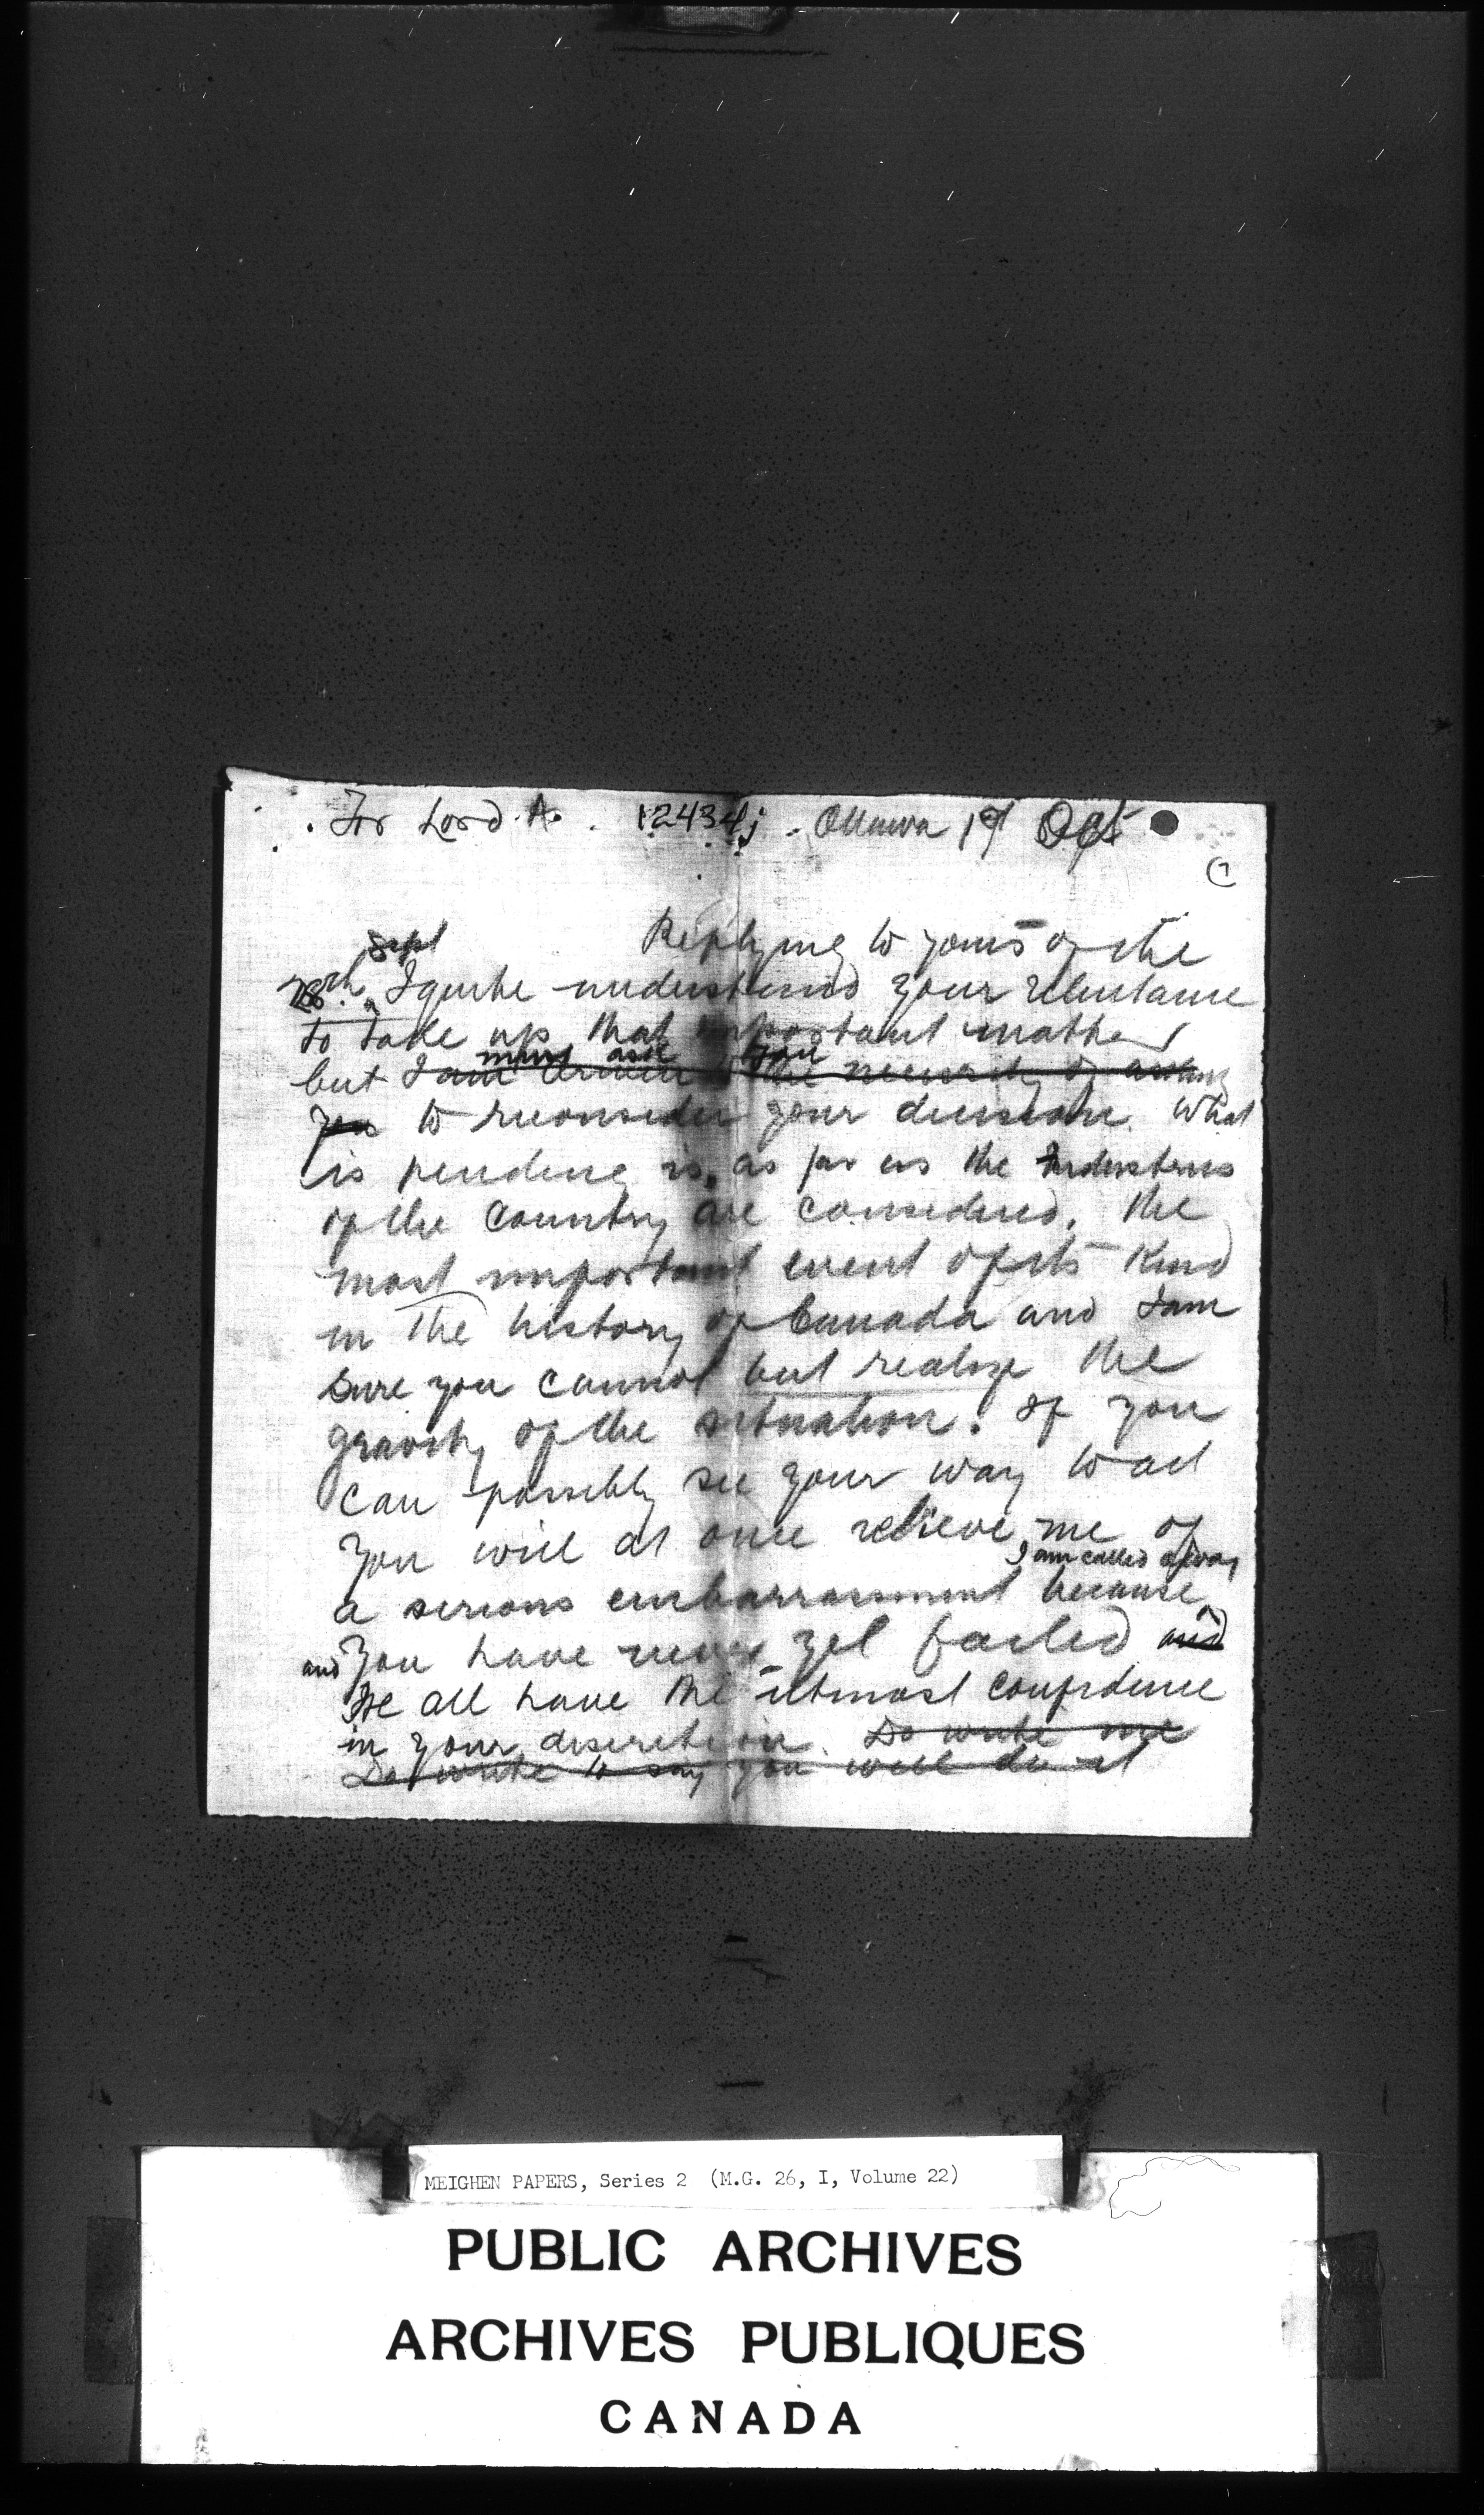 For Lord A. 12434j. Ottawa 19 Oct
C
Replying to yours of the
Sept
28th I quite understand your reluctance
to take up that important matter
must ask you
but I am driven to the necessity of asking
you to reconsider your decision. What
is pending is, as far as the Industries
of the Country are considered, the
most important event of its kind
in the history of Canada and I am
sure you cannot but realize the
gravity of the situation. If you
can possibly see your way to act
you will at once relieve me of
I am called away
a serious embarrassment because
you have never yet failed and
and We all have the utmost confidence
in your discretion. Do write me
Do write to say you will do it
MEIGHEN PAPERS, Series 2 (M.G. 26, I, Volume 22)
PUBLIC ARCHIVES
ARCHIVES PUBLIQUES
CANADA